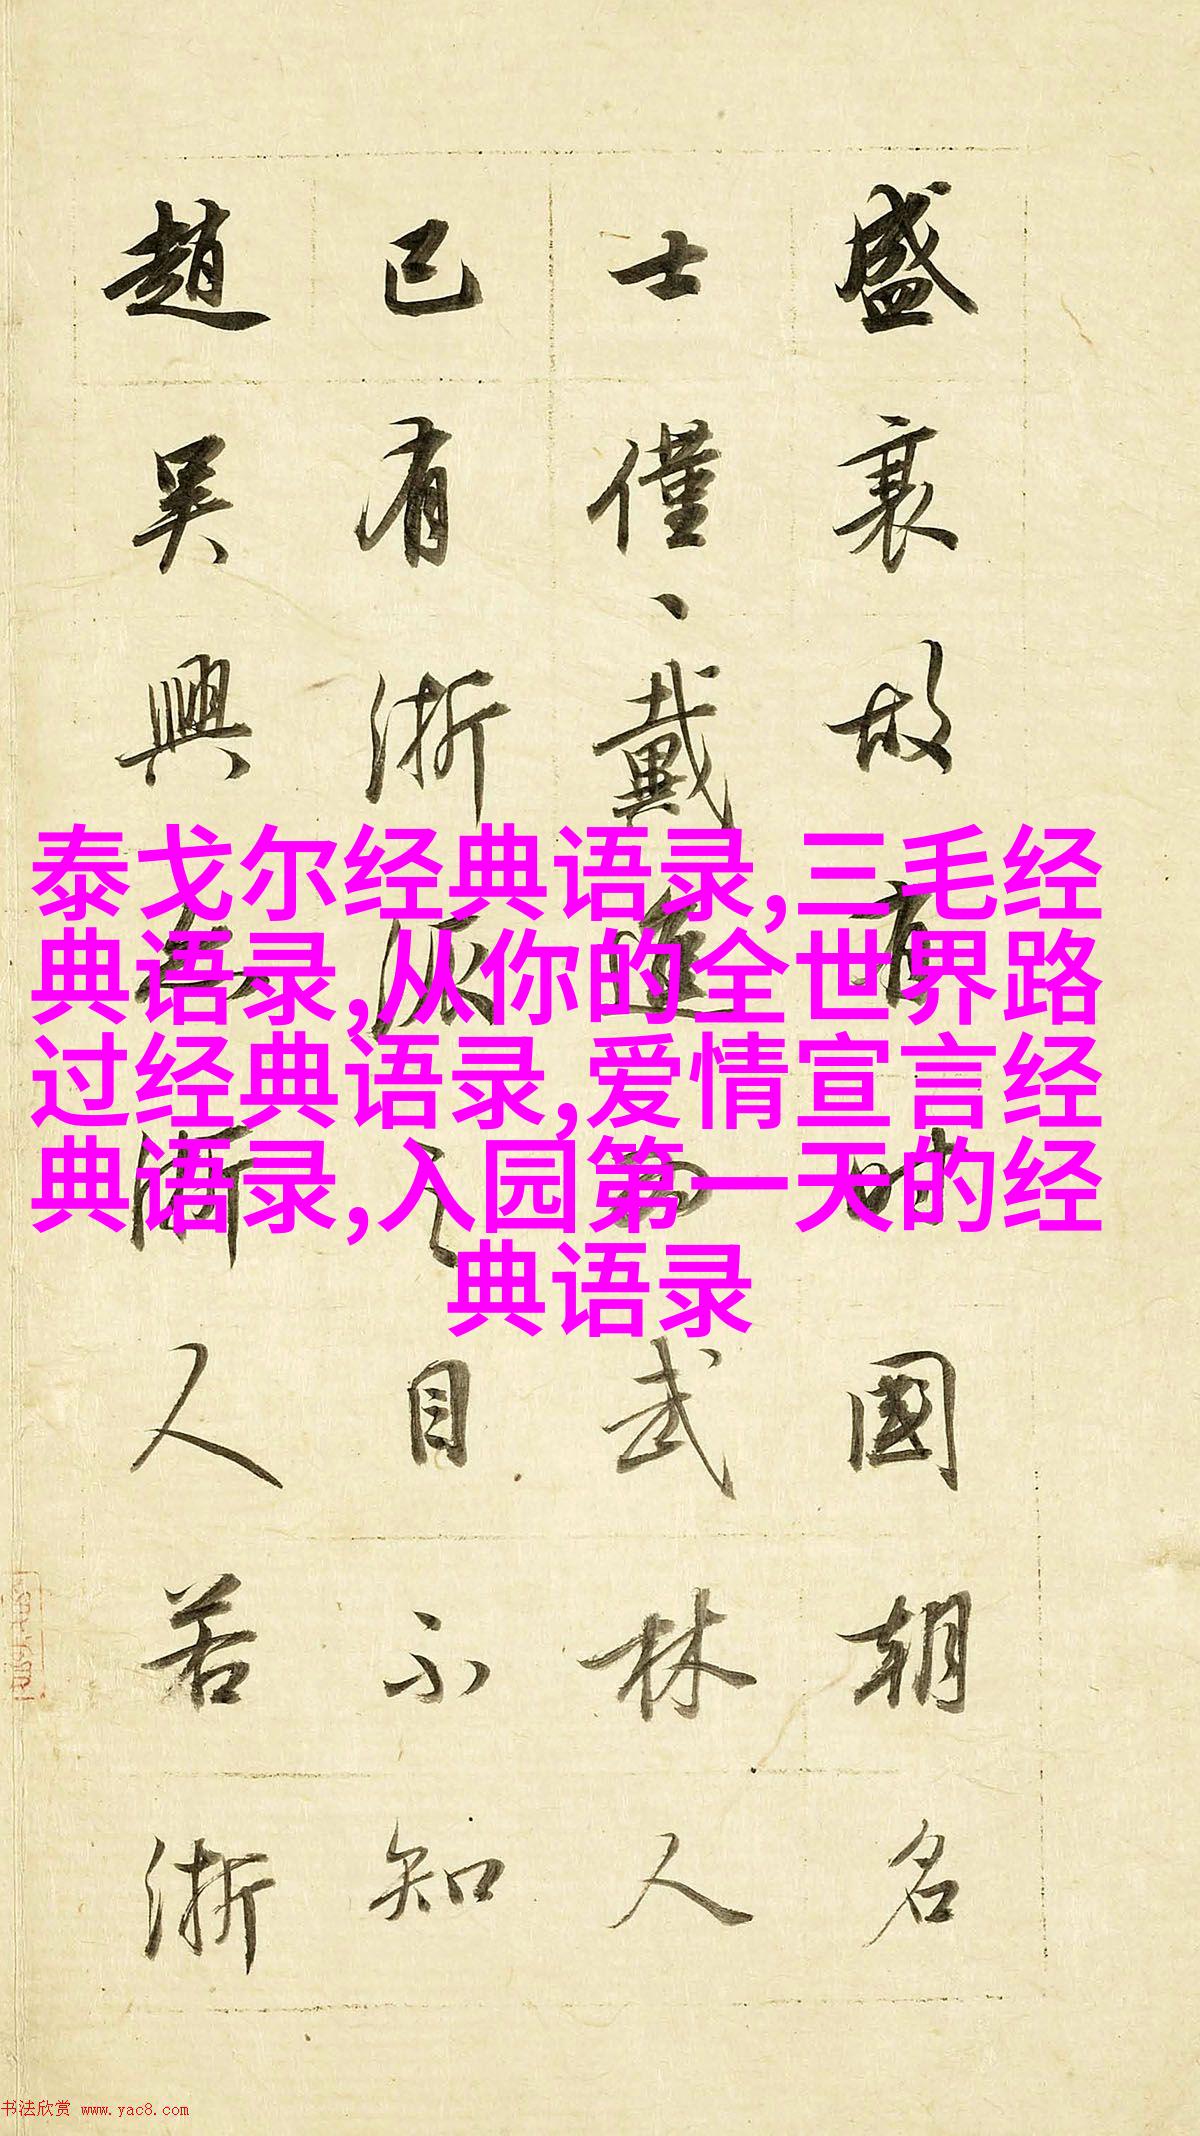 盛衰故有時國朝名
士僅、戴進為武林人
已有浙派之目不知
趙吳興亦浙人若浙
泰戈尔经典语录,三毛经
典语录,从你的全世界路
过经典语录,爱情宣言经
典语录,入园第一天的经
典语录
书法欣赏 www.yac8.com